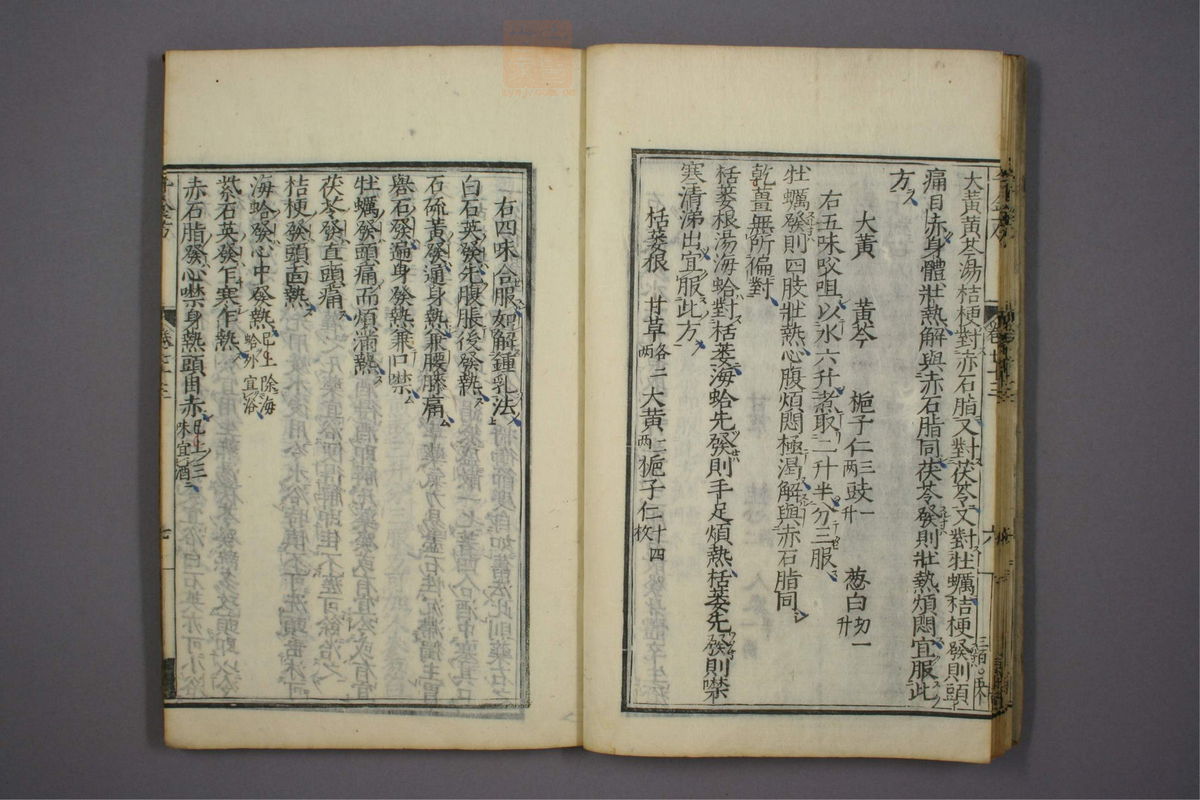 大黃黃芩湯桔梗對赤石脂又對茯苓又對牡蠣桔梗發則頭
痛目赤身體壯熱解與赤石脂同茯苓發則壯熱煩悶宜服此
方
大黃 黃芩 梔子仁三兩 豉一升 葱白切一升
右五味㕮咀以水六升煮取二升半分三服
牡蠣發則四肢壯熱心腹煩悶極渴解與赤石脂同
乾薑無所偏對
栝蔞根湯海蛤對栝蔞海蛤先發則手足煩熱栝蔞先發則噤
寒清涕出宜服此方
栝蔞根 甘草各二兩 大黃二兩 梔子仁十四枚
右四味合服如解鍾乳法
白石英發先腹脹後發熱
石硫黃發通身熱兼腰膝痛
礜石發遍身發熱兼口噤
牡蠣發頭痛而煩滿熱
茯苓發直頭痛
桔梗發頭面熱
海蛤發心中發熱巳上除海蛤外宜浴
紫石英發乍寒乍熱
赤石脂發心噤身熱頭目赤巳上三味宜酒
七